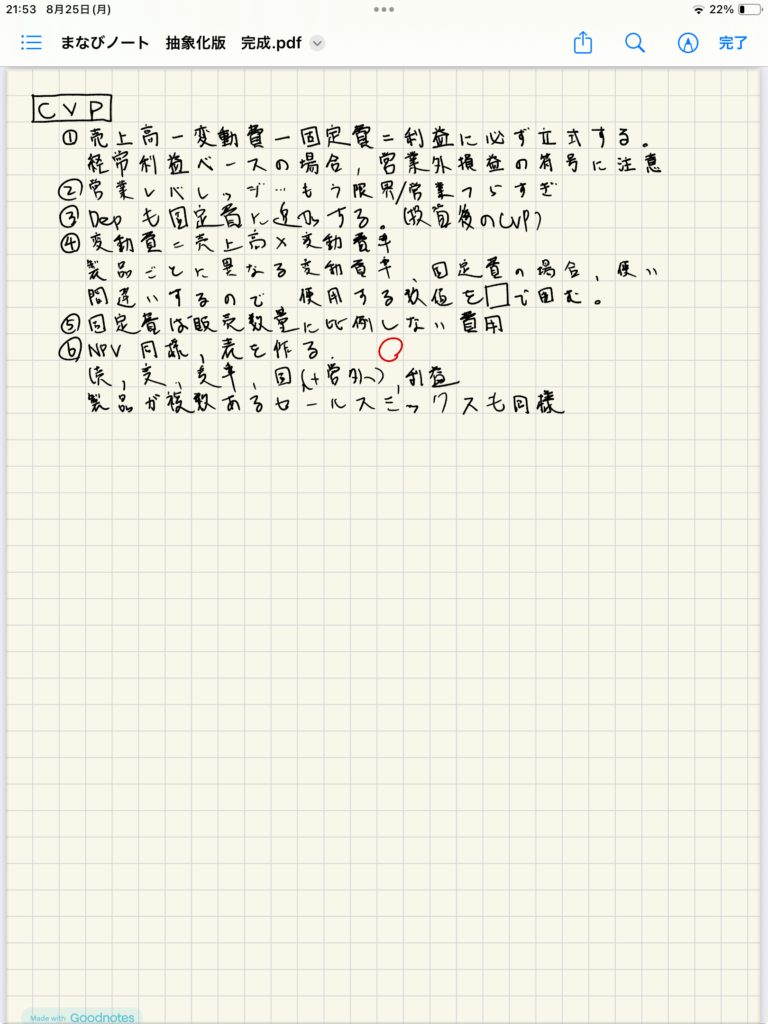 21:53 8月25日(月)
22%
まなびノート 抽象化版 完成.pdf
完了
CVP
① 売上高-変動費-固定費=利益に必ず立式する。
経常利益ベースの場合,営業外損益の符号に注意
② 営業レバレッジ…もう限界/営業つらすぎ
③ Depも固定費に追加する。(投資後のCVP)
④ 変動費=売上高×変動費率
製品ごとに異なる変動費率、固定費の場合、使い
間違いするので、使用する数値を□で囲む。
⑤ 固定費は販売数量に比例しない費用
⑥ NPV同様,表を作る.
売,変,変率,固(+営外),利益
製品が複数あるセールスミックスも同様
Made with Goodnotes